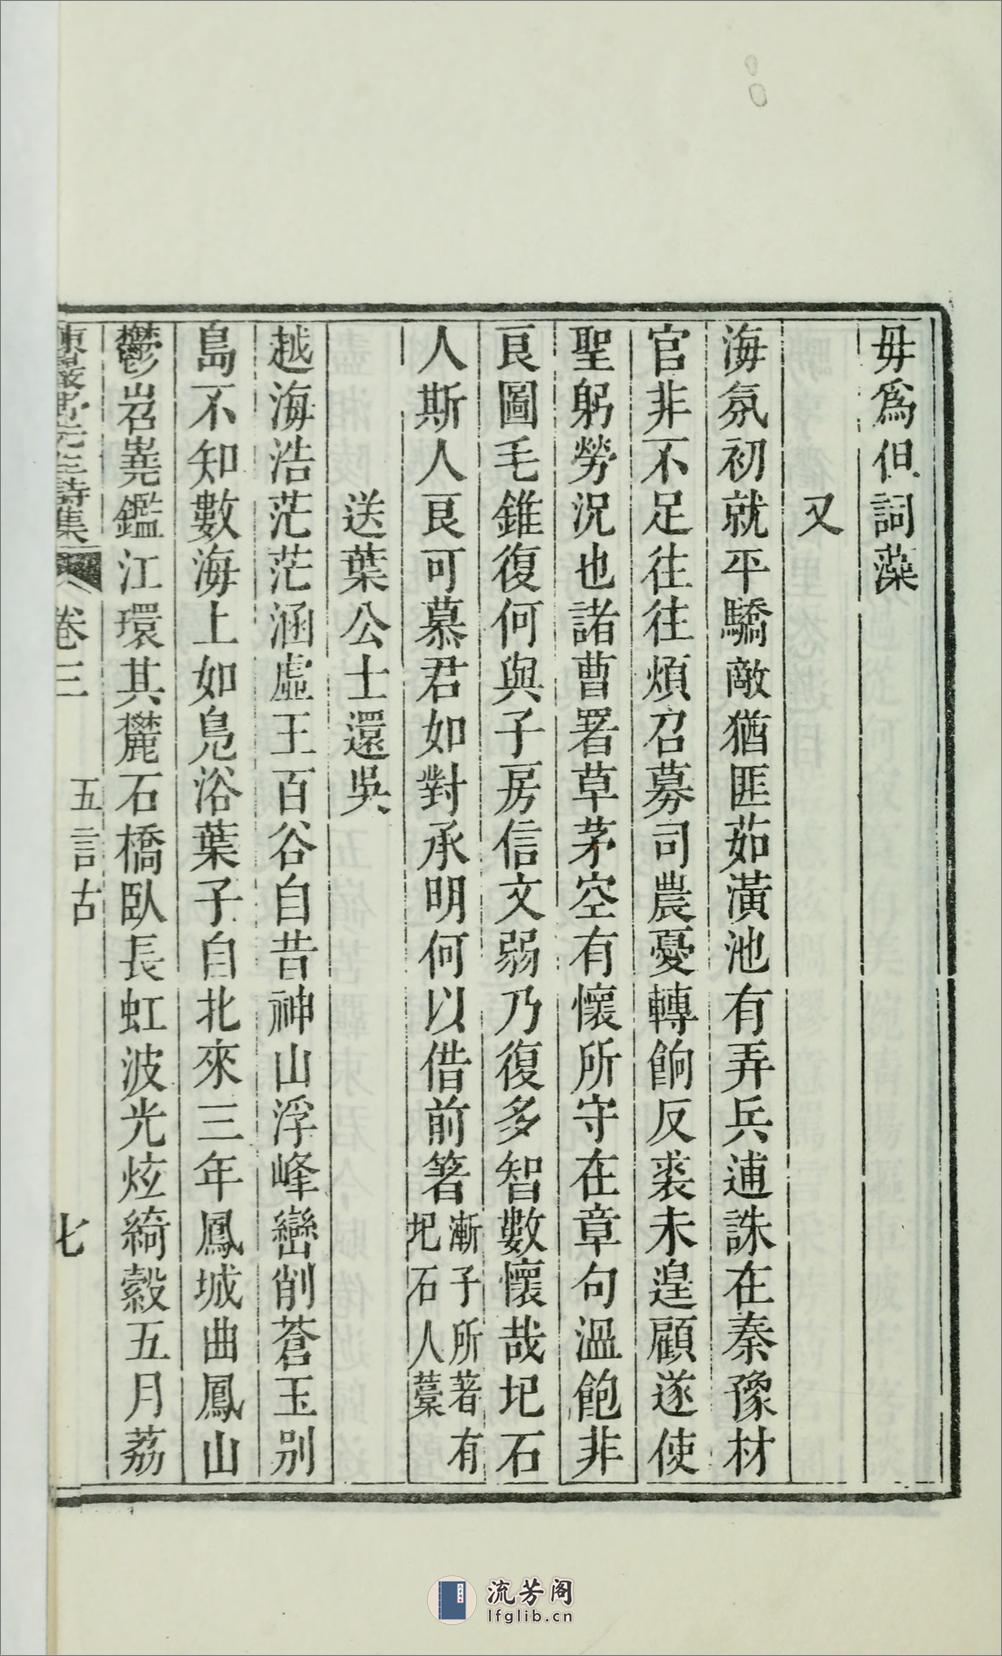 毋爲但詞藻
又
海氛初就平驕敵猶匪茹潢池有弄兵逋誅在秦豫材
官非不足往往煩召募司農憂轉餉反裘未遑顧遂使
聖躬勞況也諸曹署草茅空有懷所守在章句溫飽非
良圖毛錐復何與子房信文弱乃復多智數懷哉圯石
人斯人良可慕君如對承明何以借前箸漸子所著有圯石人藁
送葉公士還吳
越海浩茫茫涵虛王百谷自昔神山浮峰巒削蒼玉別
島不知數海上如鳧浴葉子自北來三年鳳城曲鳳山
鬱岧嶤鑑江環其麓石橋臥長虹波光炫綺縠五月荔
先生詩集 卷三 五言古 七
流芳阁
lfglib.cn